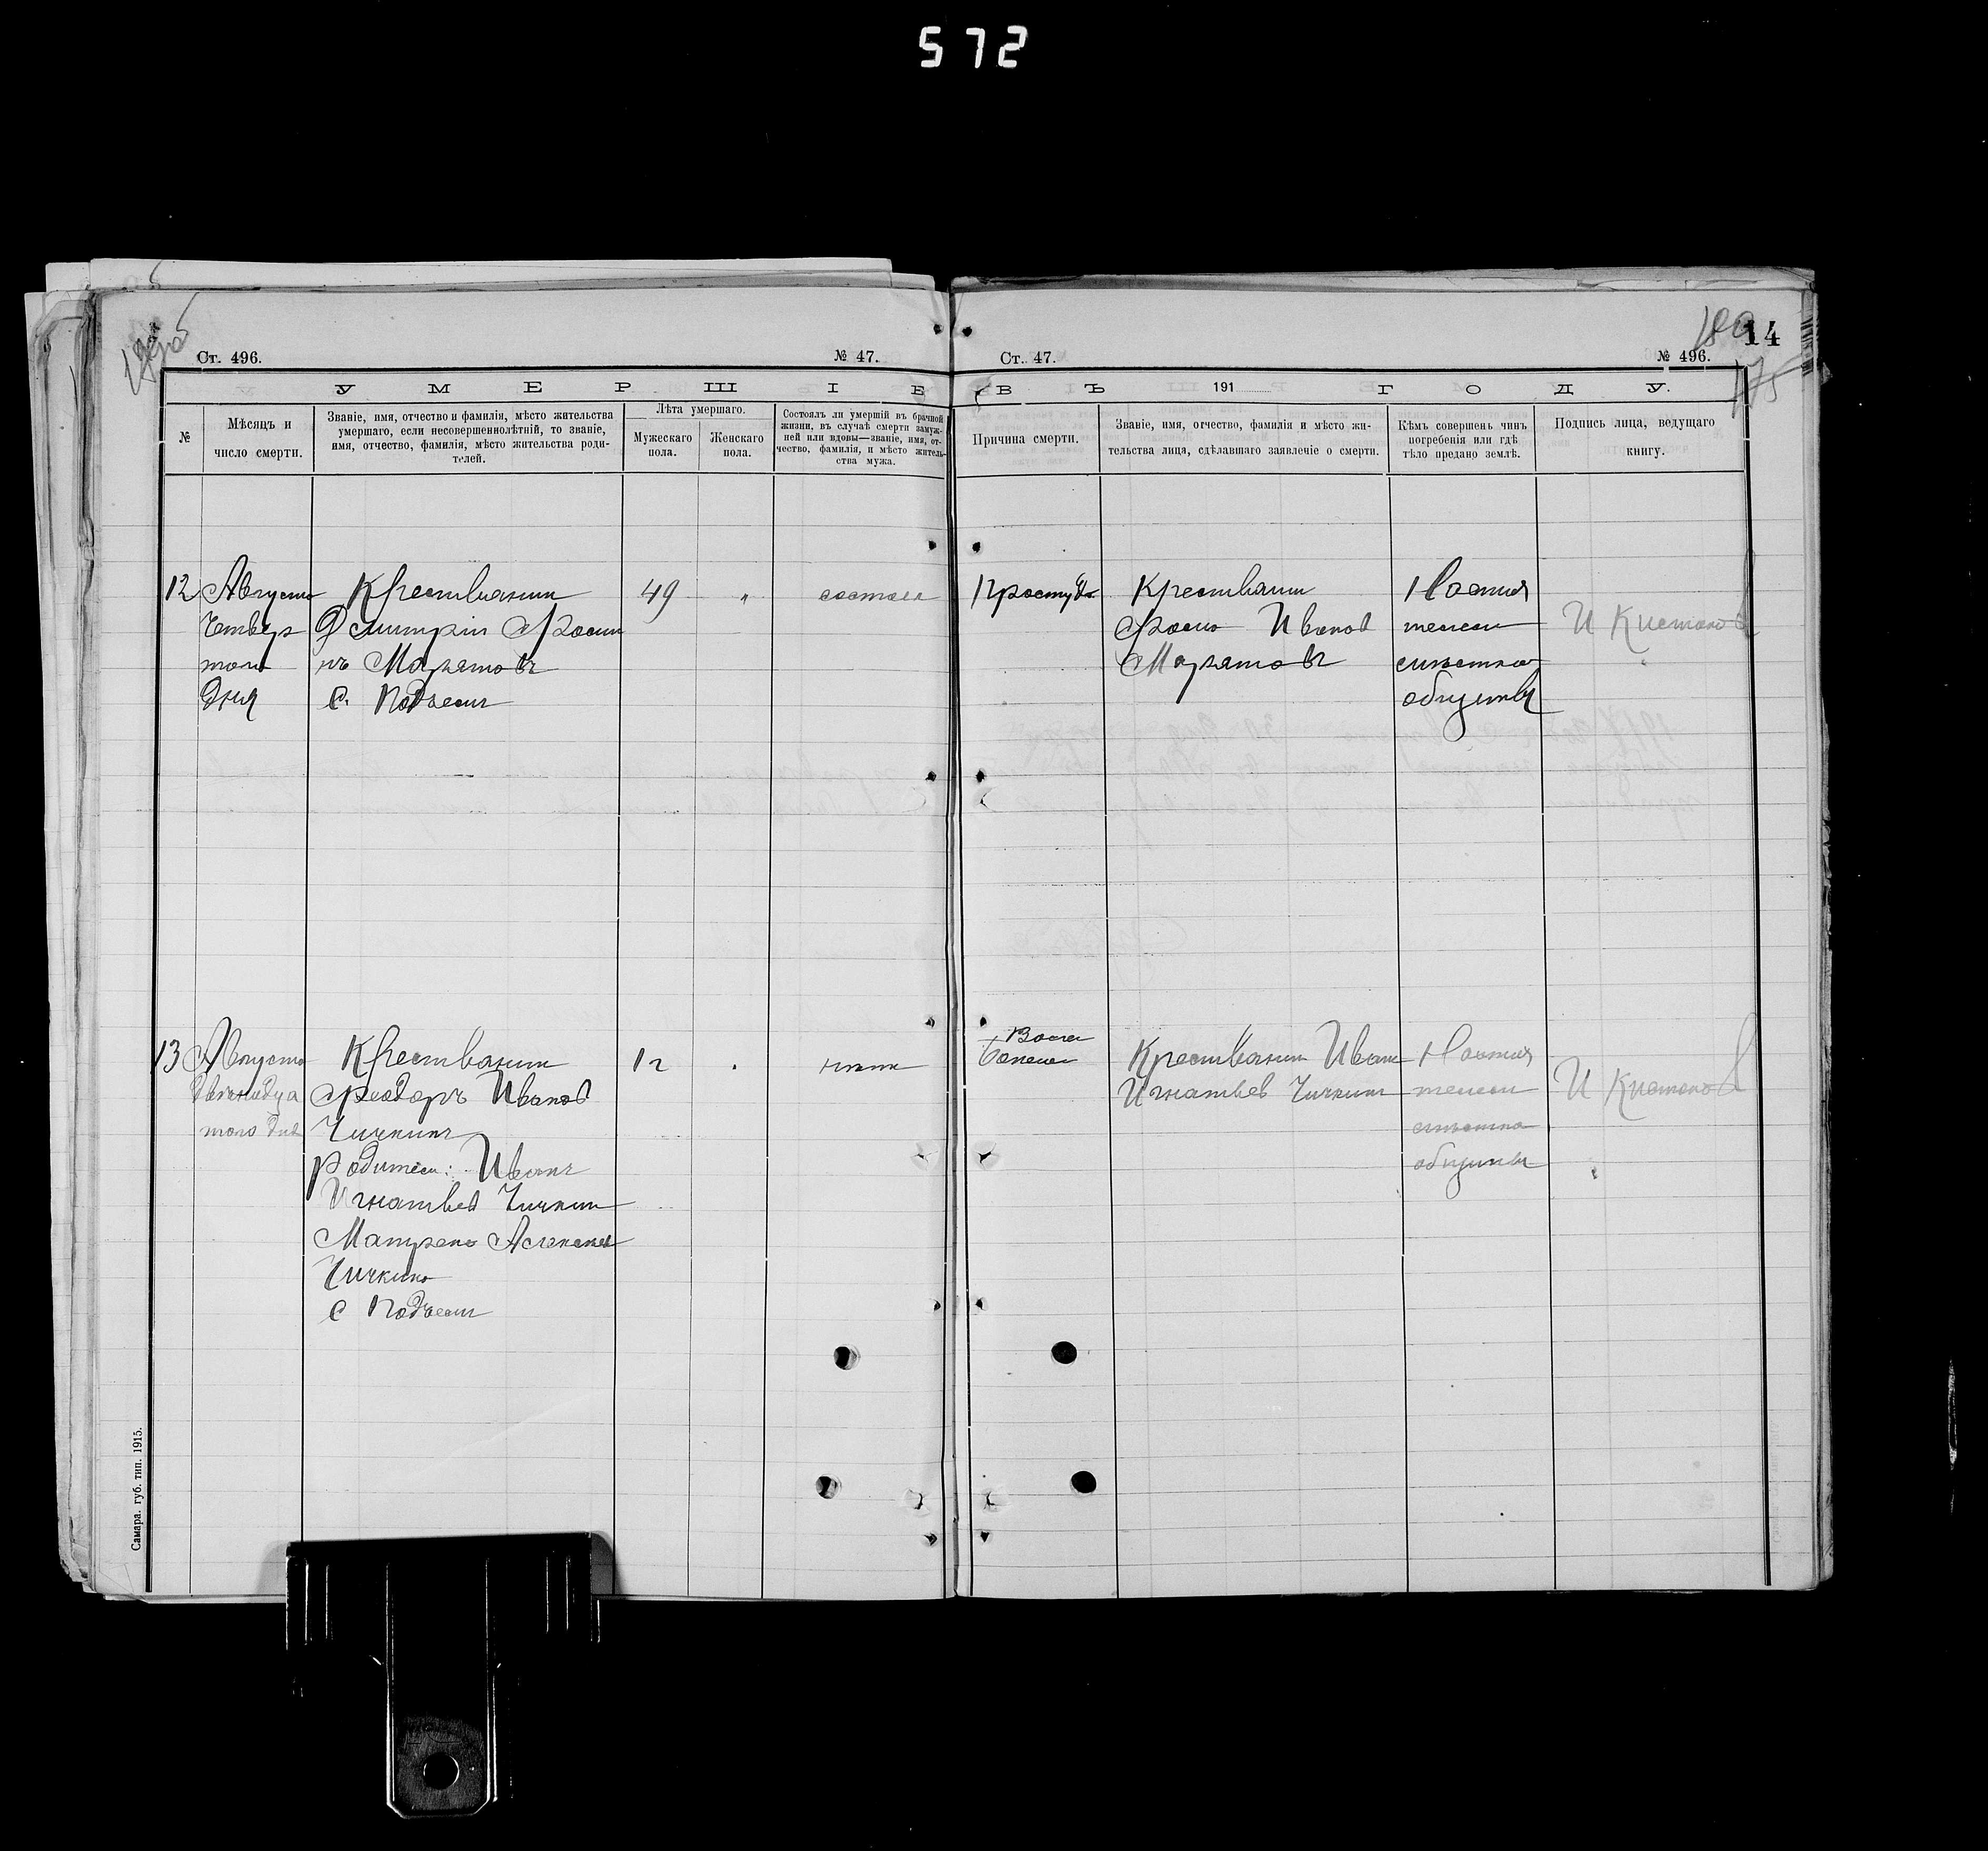 572
Ст. 496.
№ 47.
У М Е Р Ш І Е
№
Мѣсяцъ и
число смерти.
Званіе, имя, отчество и фамилія, мѣсто жительства
умершаго, если несовершеннолѣтній, то званіе,
имя, отчество, фамилія, мѣсто жительства роди-
телей.
Лѣта умершаго.
Мужескаго
пола.
Женскаго
пола.
Состоялъ ли умершій въ брачной
жизни, въ случаѣ смерти замуж-
ней или вдовы—званіе, имя, от-
чество, фамилія, и мѣсто житель-
ства мужа.
12 Августа Крестьянин 49 " состоял
Четвер Дмитрій
того Муратовъ
дня с.
13 Августа Крестьянин 1 г
двенадца Феодоръ Иванов
того дня Чичкинъ
Родители: Иванъ
Игнатьев Чичкин
Матрена
Чичкина
с
Самара. губ. тип. 1915.
180
14
175
Ст. 47.
№ 496.
В Ъ 191 Г О Д У.
Причина смерти.
Званіе, имя, отчество, фамилія и мѣсто жи-
тельства лица, сдѣлавшаго заявленіе о смерти.
Кѣмъ совершенъ чинъ
погребенія или гдѣ
тѣло предано землѣ.
Подпись лица, ведущаго
книгу.
простуда Крестьянин
Иванов И Кистанов
Муратовъ
общины
Крестьянин Иван
Игнатьев Чичкин И Кистанов
общины